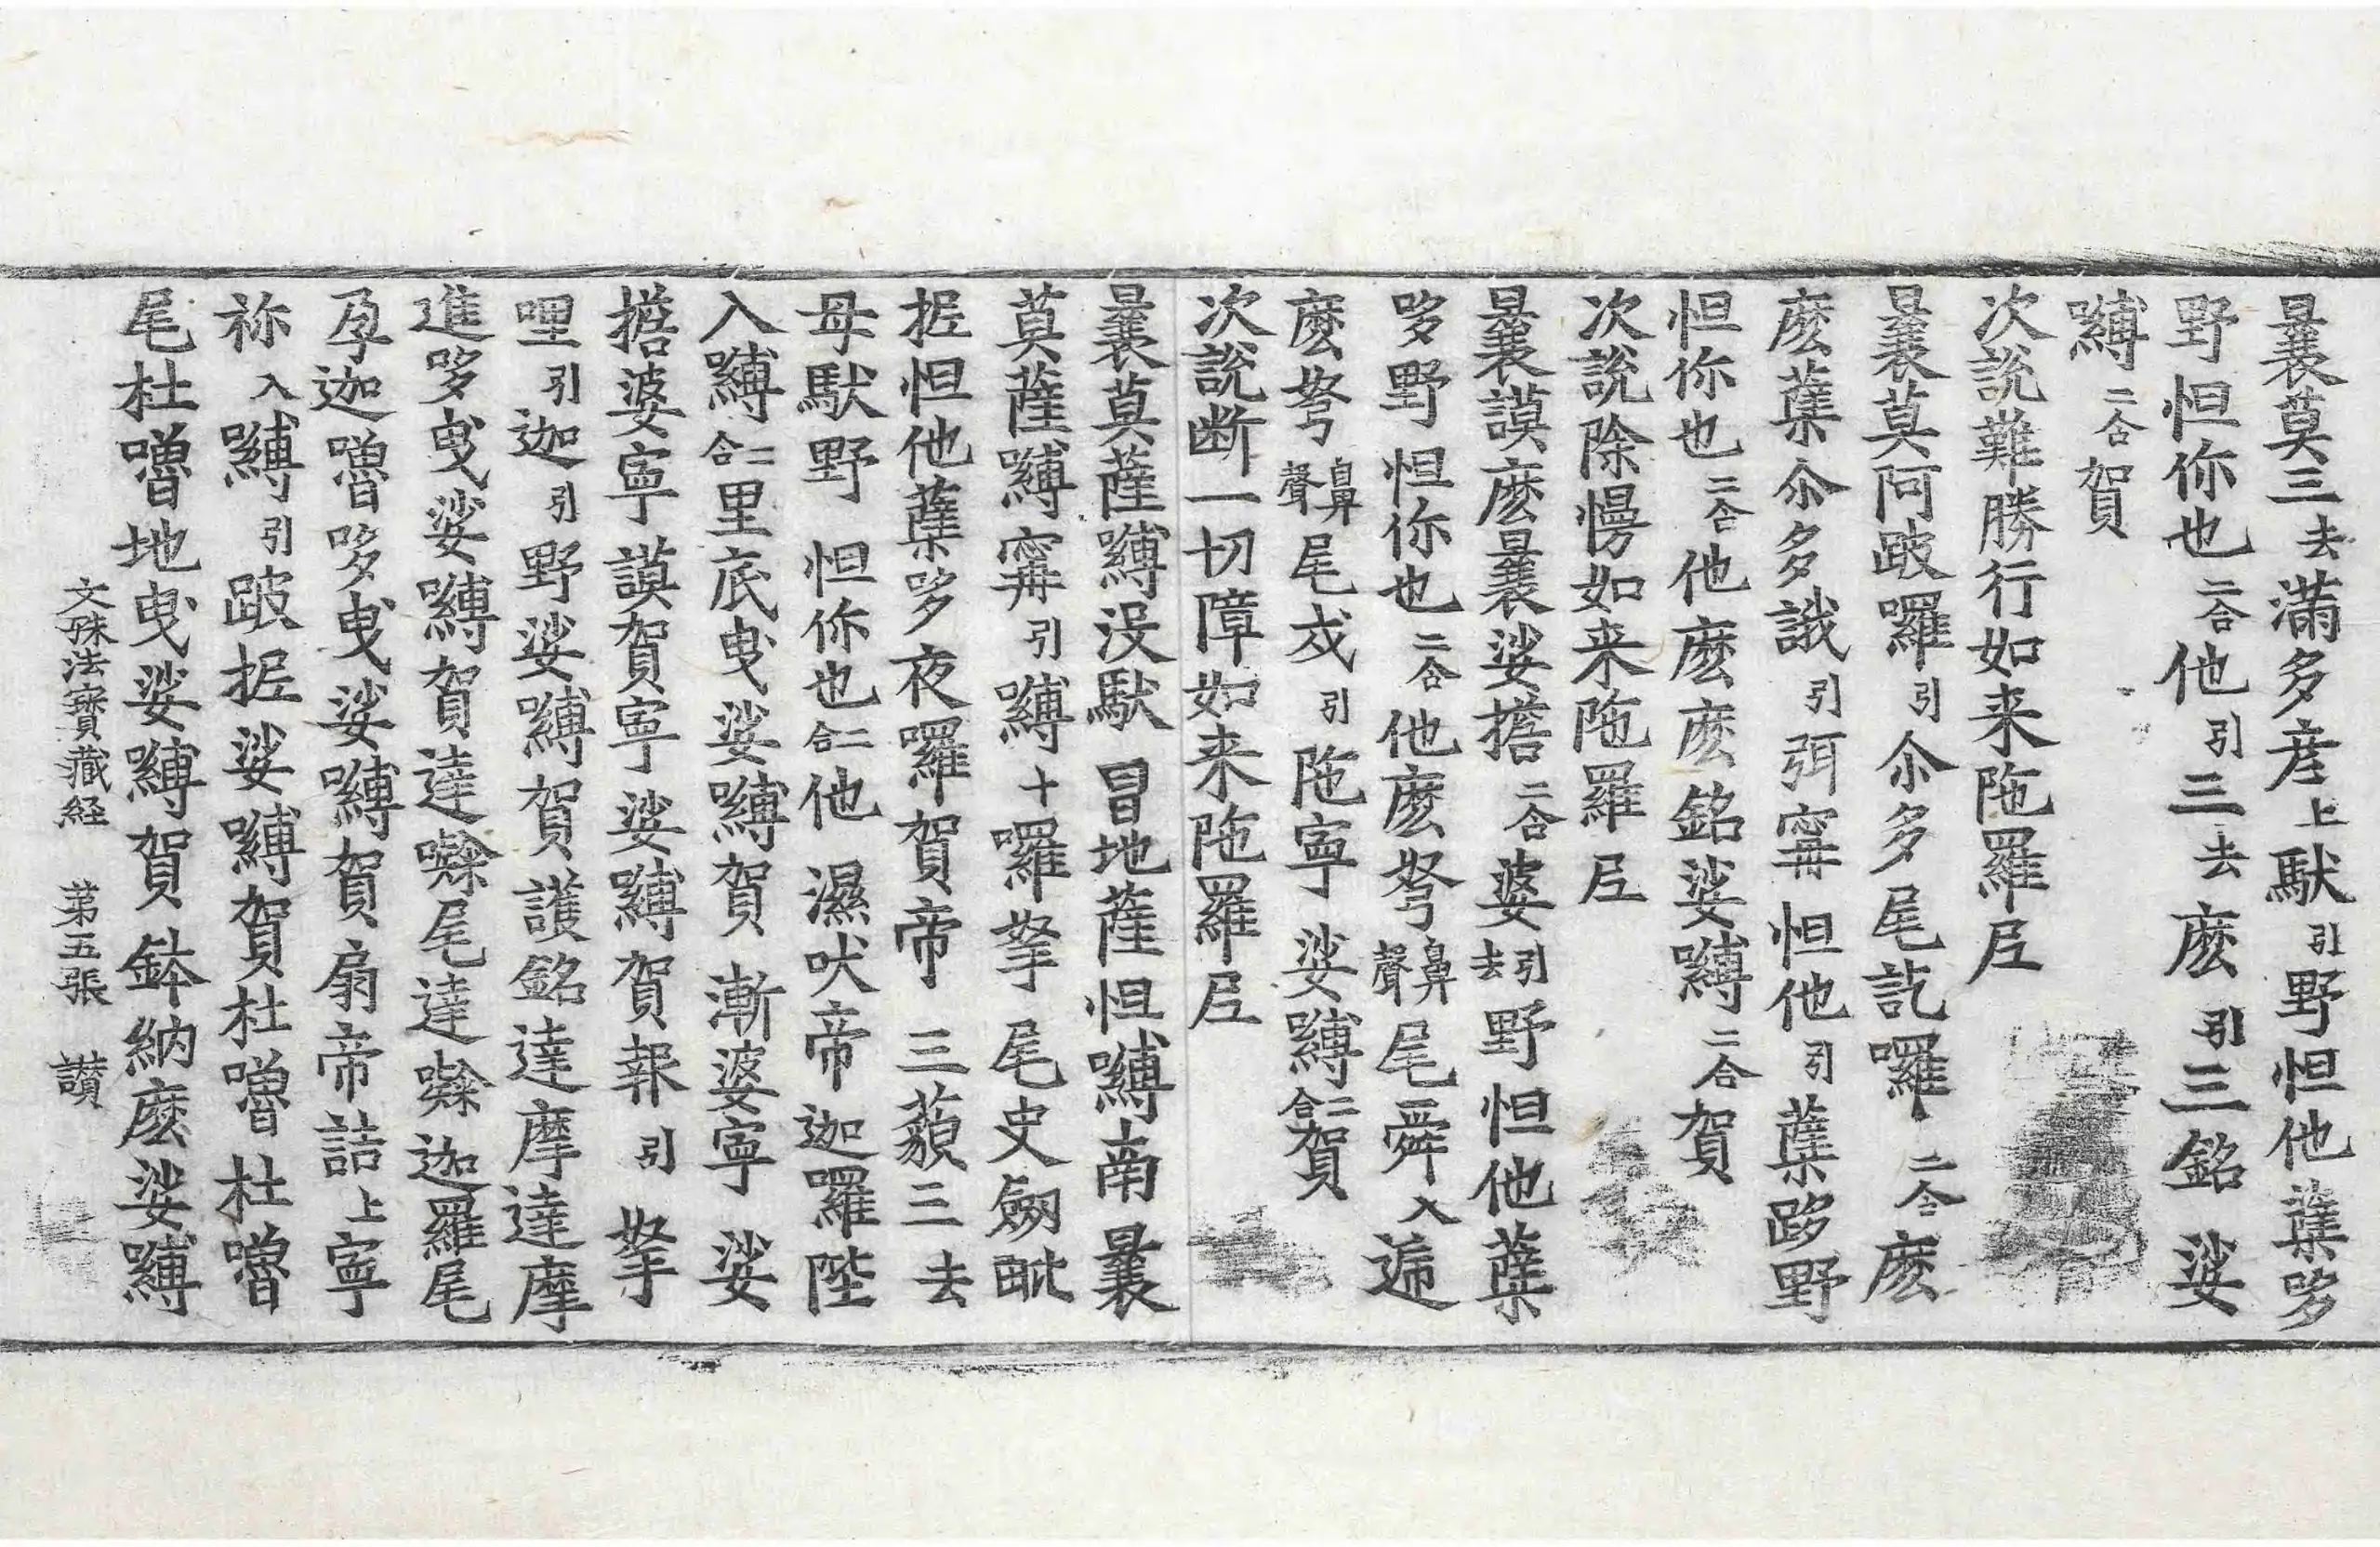 曩莫三去滿多彦上馱引野怛他蘖哆
野怛你也二合他引三去麽引三銘娑
嚩二合賀
次說難勝行如来陁羅𡰱
曩莫阿跛囉引尒多尾訖囉二合麽
麽蘖尒多誐引弭寗怛他引蘖跢野
怛你也二合他麽麽銘娑嚩二合賀
次說除慢如来陁羅𡰱
曩謨麽曩娑擔二合婆引去野怛他蘖
哆野怛你也二合他麽弩鼻聲尾舜入遰
麽弩鼻聲尾戍引陁寧娑嚩二合賀
次說断一切障如来陁羅𡰱
曩莫薩嚩没馱冒地薩怛嚩南曩
莫薩嚩寗引嚩十囉拏尾史劒毗
抳怛他蘖哆夜囉賀帝三藐三去
母馱野怛你也二合他濕吠帝迦羅陛
入嚩二合里底曳娑嚩賀漸婆寧娑
擔婆寧謨賀寧娑嚩賀報引拏
哩引迦引野娑嚩賀護銘達摩達摩
進哆曳娑嚩賀達㘑尾達㘑迦羅尾
孕迦嚕哆曳娑嚩賀扇帝詰上寧
祢入嚩引跛抳娑嚩賀杜嚕杜嚕
尾杜嚕地曳娑嚩賀鉢納麽娑嚩
文殊法寳藏経 第五張 讃